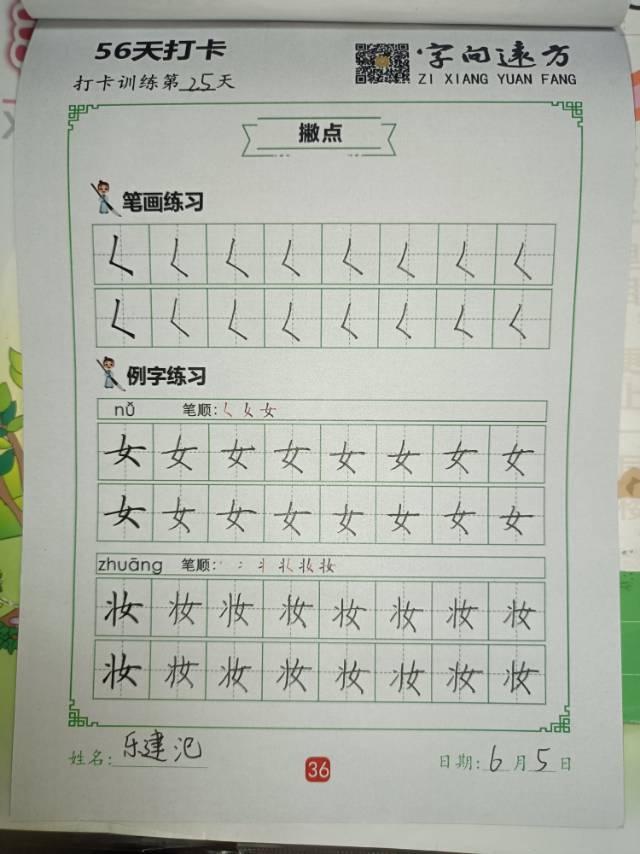 56天打卡
字向远方
打卡训练第25天
ZI XIANG YUAN FANG
撇点
笔画练习
𡿨 𡿨 𡿨 𡿨 𡿨 𡿨 𡿨 𡿨
𡿨 𡿨 𡿨 𡿨 𡿨 𡿨 𡿨 𡿨
例字练习
nǚ 笔顺: 𡿨 女 女
女 女 女 女 女 女 女 女
女 女 女 女 女 女 女 女
zhuāng 笔顺:
妆 妆 妆 妆 妆 妆 妆 妆
妆 妆 妆 妆 妆 妆 妆 妆
姓名: 乐建
36
日期: 6月5日